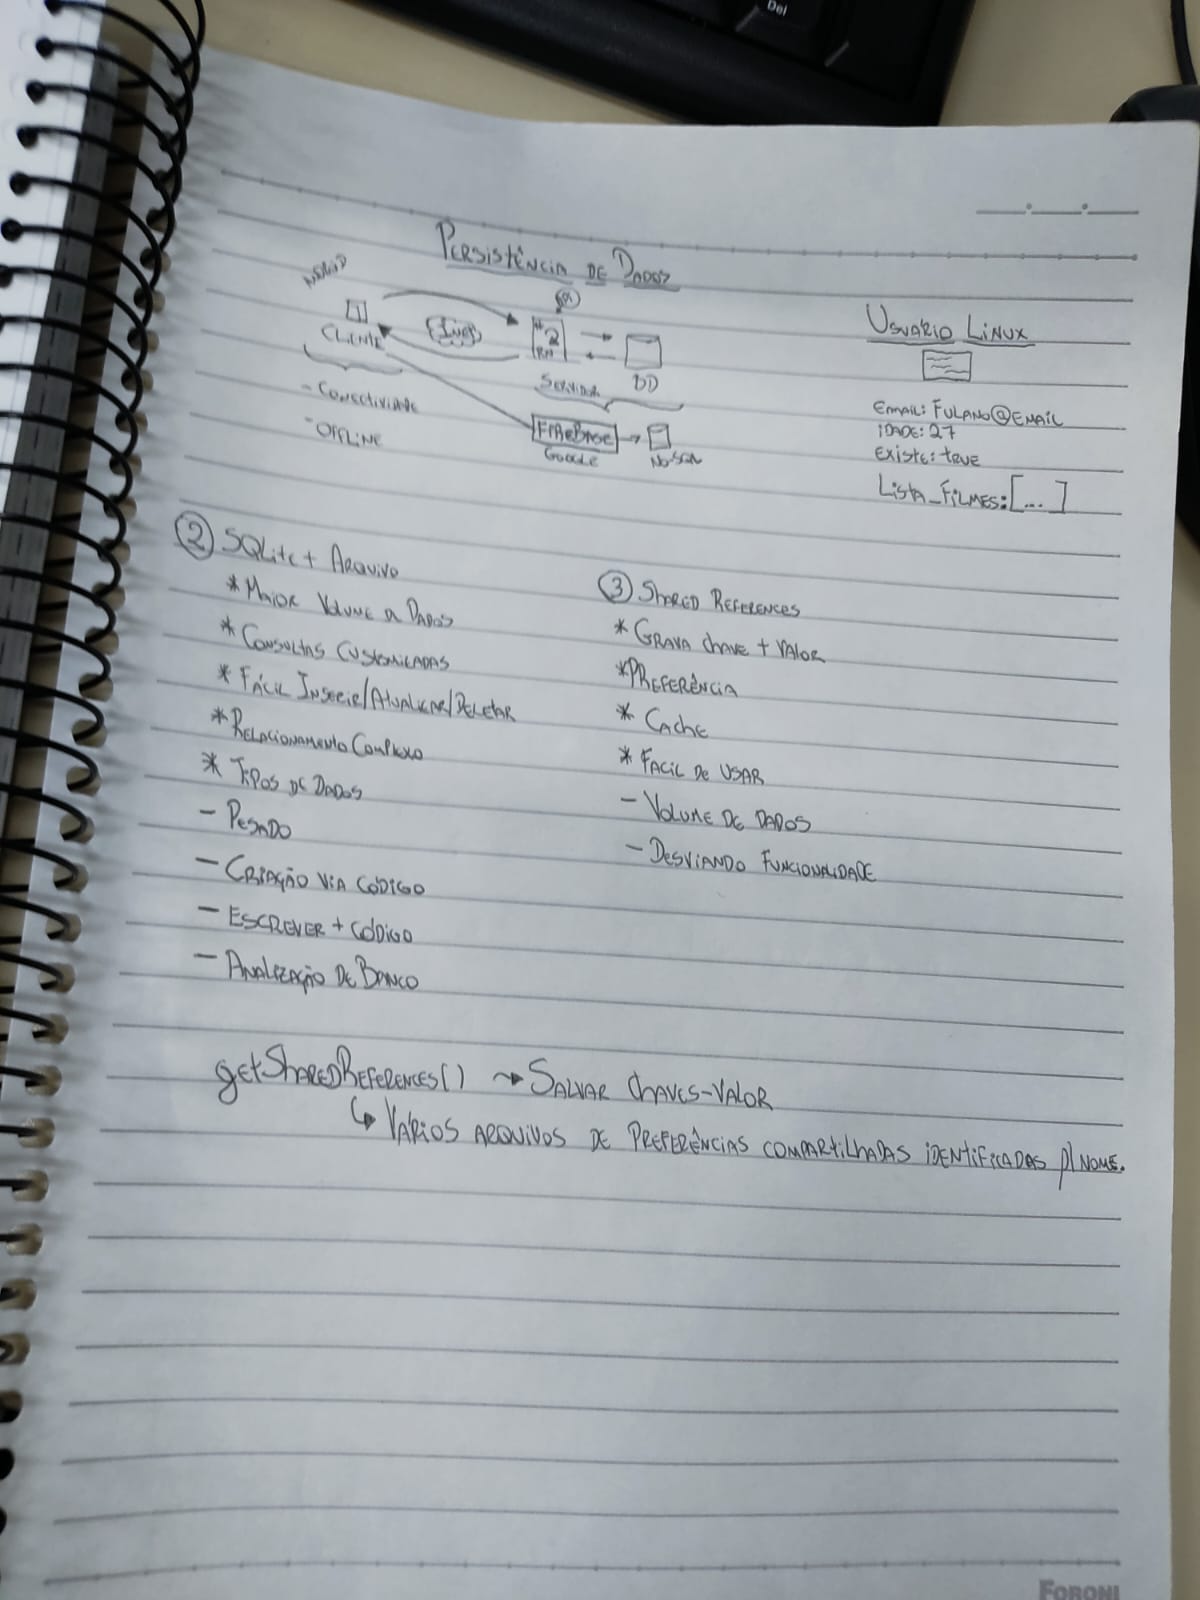 Del
Persistência de Dados
Android
1
Cliente
2
Servidor
BD
- Conectividade
- Offline
Firebase
Google
No-SQL
Usuário Linux
Email: Fulano@email
idade: 27
Existe: true
Lista_Filmes: [...]
② SQLite + Arquivo
* Maior Volume de Dados
* Consultas Customizadas
* Fácil Inserir/Atualizar/Deletar
* Relacionamento Complexo
* Tipos de Dados
- Pesado
- Criação via código
- Escrever + código
- Analização de Banco
③ Shared References
* Grava chave + valor
* Preferência
* Cache
* Facil de usar
- Volume de dados
- Desviando funcionalidade
getSharedReferences() → Salvar chaves-valor
↳ Vários arquivos de preferências compartilhadas identificadas p/ nome.
Foroni